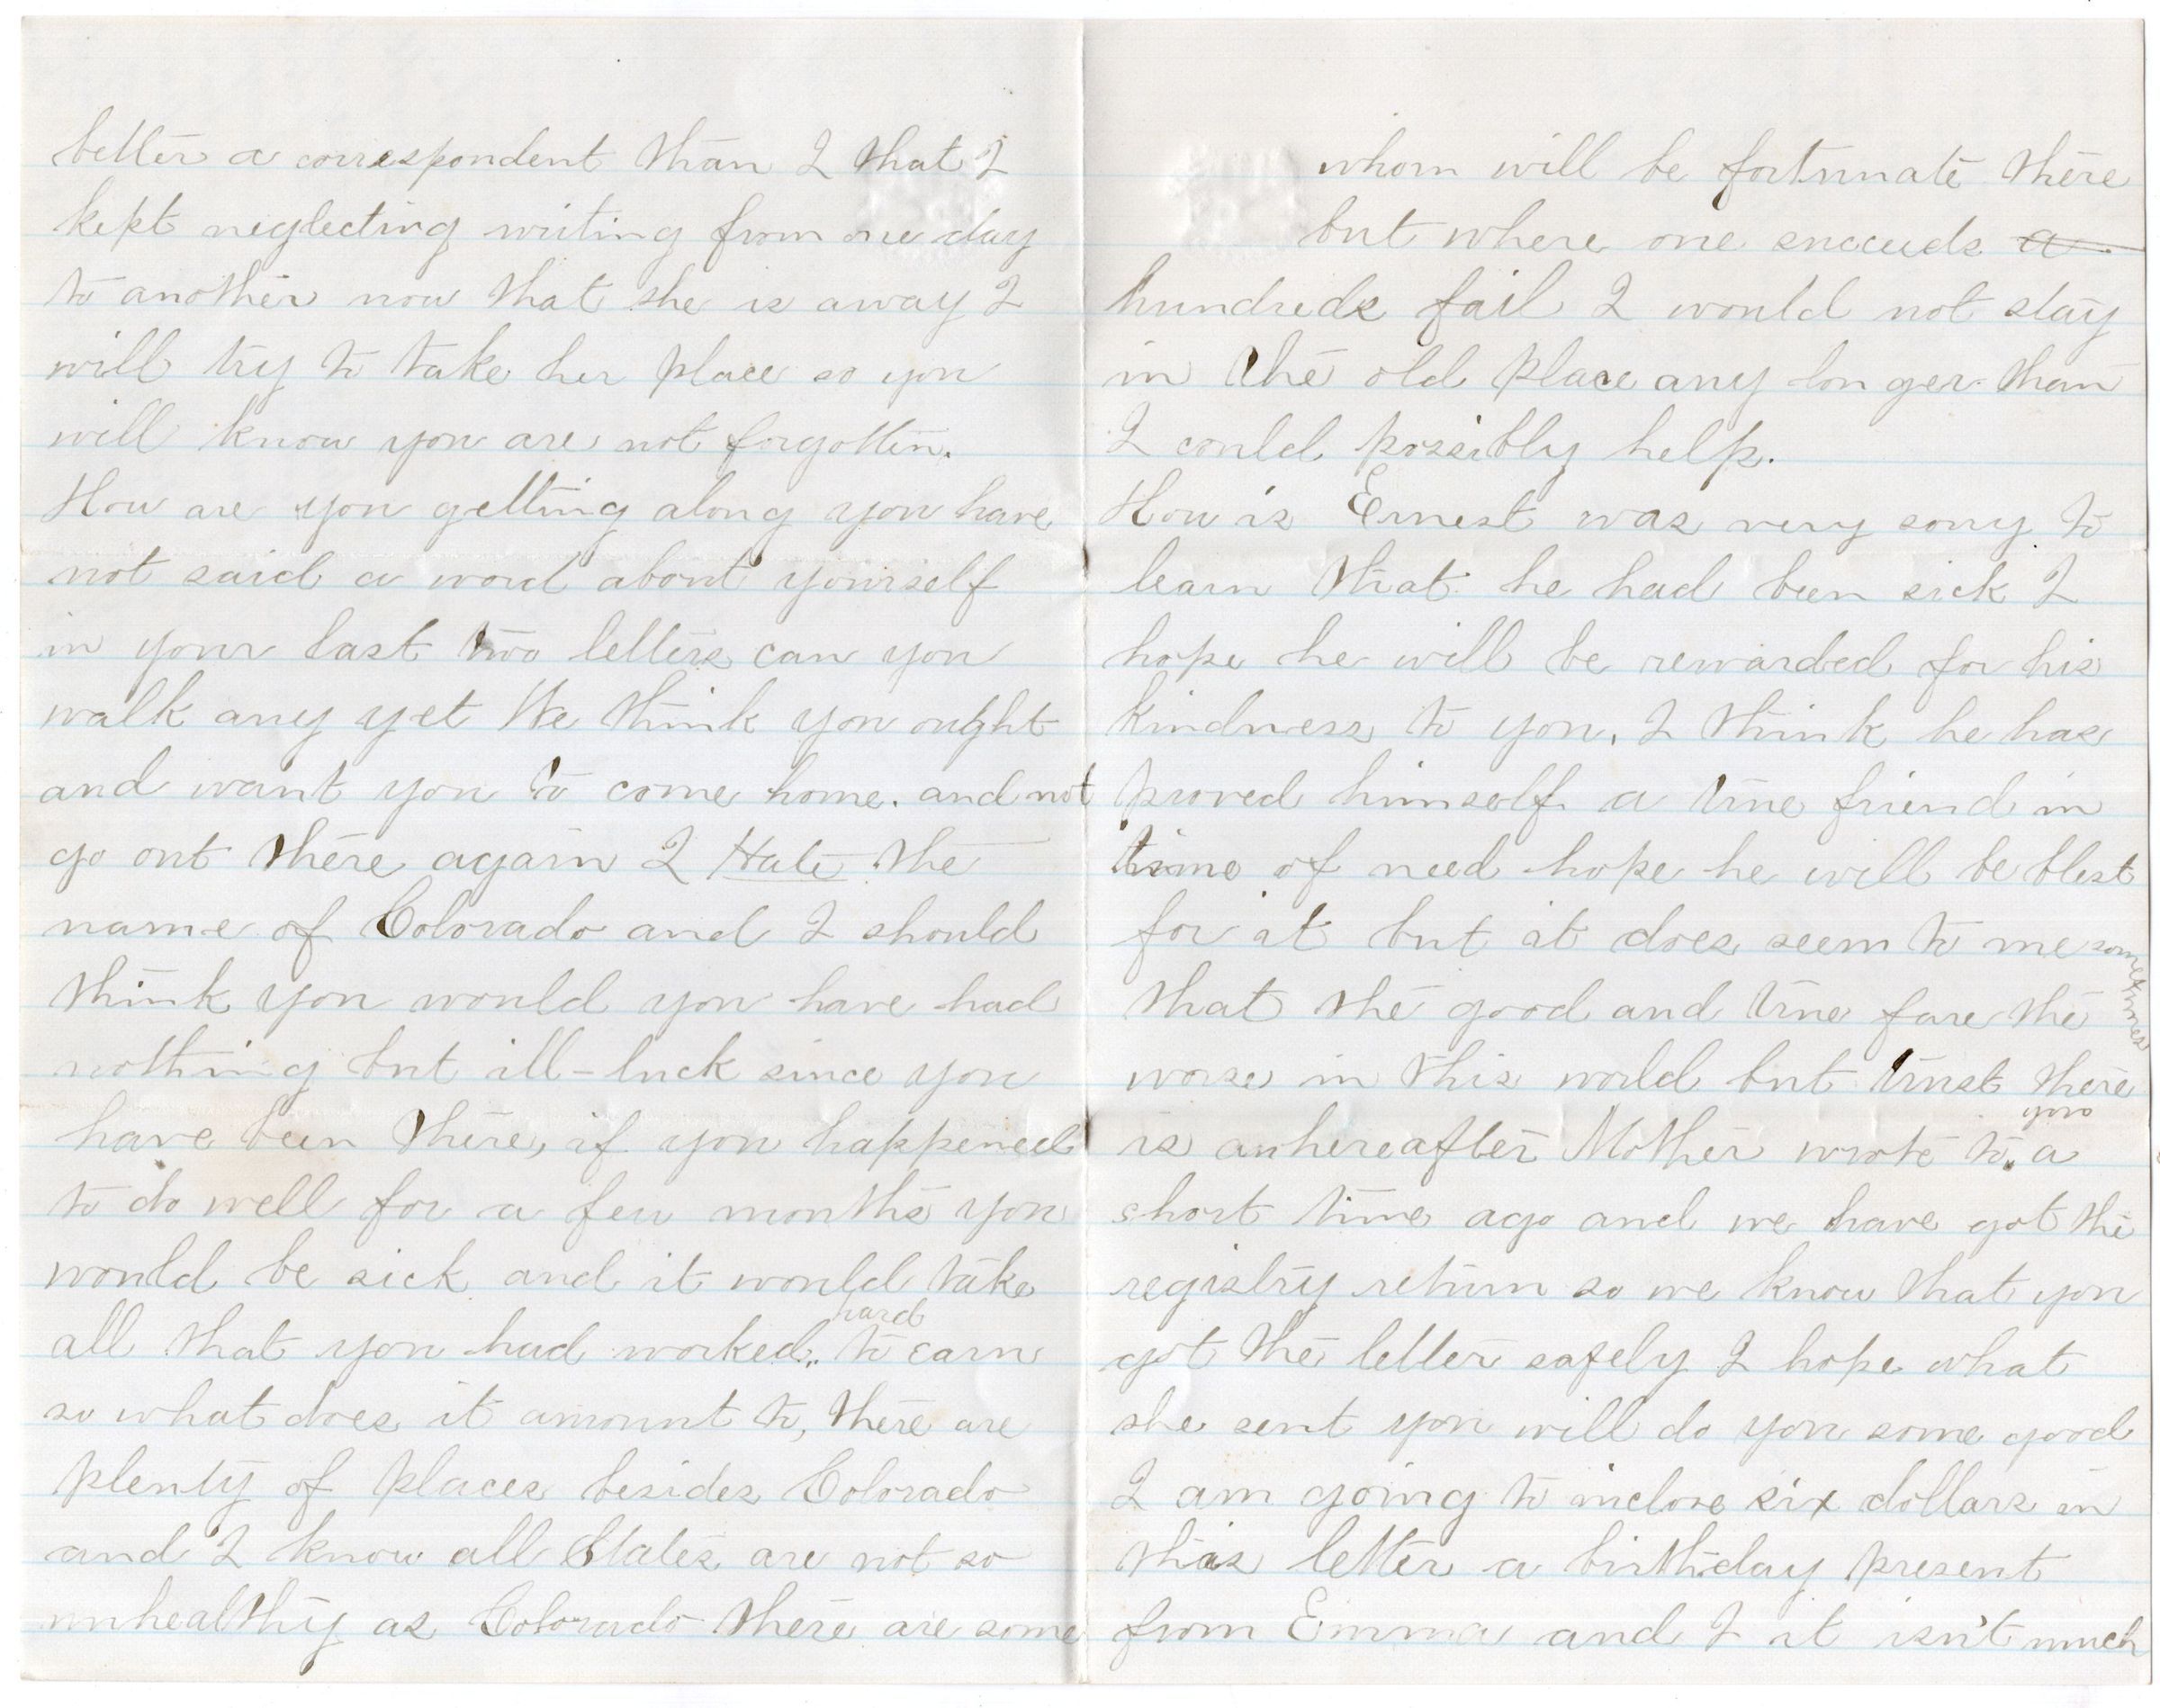 better a correspondent than I that I
kept neglecting writing from one day
to another now that she is away I
will try to take her place so you
will know you are not forgotten.
How are you getting along you have
not said a word about yourself
in your last two letters can you
walk any yet We think you ought
and want you to come home. and not
go out there again I Hate the
name of Colorado and I should
think you would you have had
nothing but ill-luck since you
have been there, if you happened
to do well for a few months you
would be sick and it would take
hard
all that you had worked to earn
so what does it amount to, there are
plenty of places besides Colorado
and I know all States are not so
unhealthy as Colorado there are some
whom will be fortunate there
but where one succeeds a
hundreds fail I would not stay
in the old place any longer than
I could possibly help.
How is Ernest was very sorry to
learn that he had been sick I
hope he will be rewarded for his
kindness to you, I think he has
proved himself a true friend in
time of need hope he will be blest
for it but it does seem to me sometimes
that the good and true fare the
worse in this world but trust there
you
is an hereafter Mother wrote to a
short time ago and we have got the
registry return so we know that you
got the letter safely I hope what
she sent you will do you some good
I am going to inclose six dollars in
this letter a birthday present
from Emma and I it isn't much